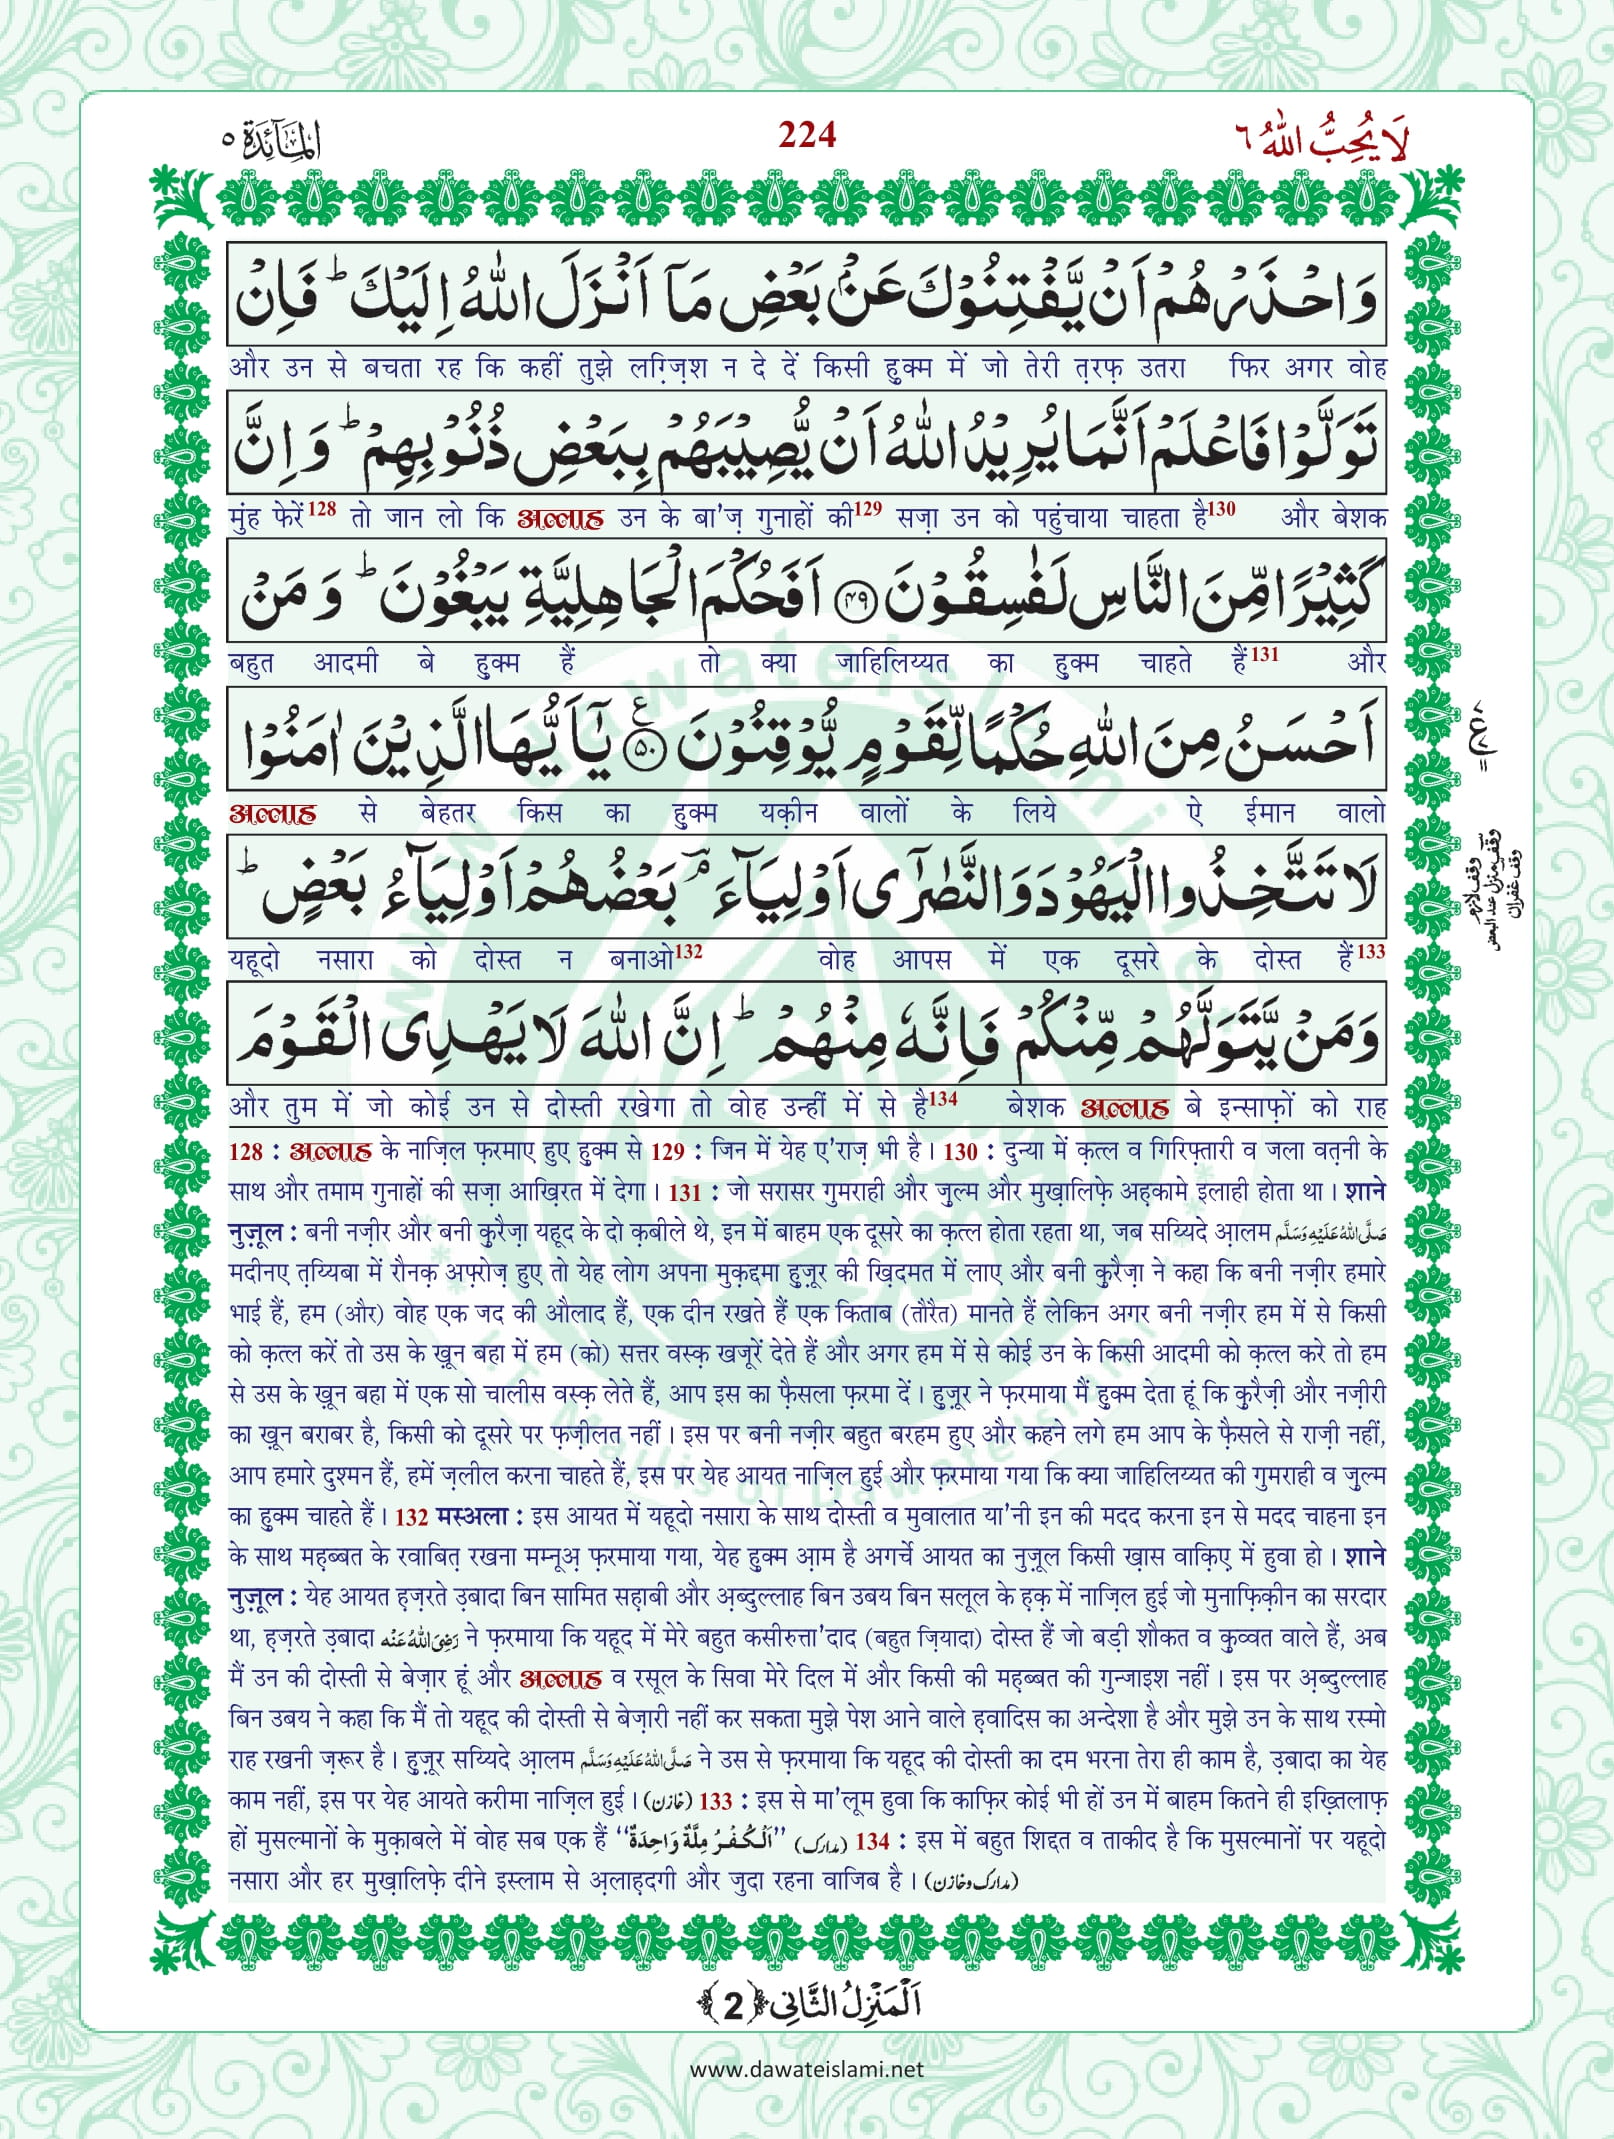 لَا يُحِبُّ اللّٰهُ ٦
224
الْمَآئِدَة ٥
وَاحْذَرْهُمْ اَنْ يَّفْتِنُوْكَ عَنْۢ بَعْضِ مَاۤ اَنْزَلَ اللّٰهُ اِلَيْكَ ؕ فَاِنْ
और उन से बचता रह कि कहीं तुझे लग़्ज़िश न दे दें किसी हुक्म में जो तेरी त़रफ़ उतरा फिर अगर वोह
تَوَلَّوْا فَاعْلَمْ اَنَّمَا يُرِيْدُ اللّٰهُ اَنْ يُّصِيْبَهُمْ بِبَعْضِ ذُنُوْبِهِمْ ؕ وَ اِنَّ
मुंह फेरें128 तो जान लो कि अल्लाह उन के बा'ज़ गुनाहों की129 सज़ा उन को पहुंचाया चाहता है130 और बेशक
كَثِيْرًا مِّنَ النَّاسِ لَفٰسِقُوْنَ ﴿۴۹﴾ اَفَحُكْمَ الْجَاهِلِيَّةِ يَبْغُوْنَ ؕ وَ مَنْ
बहुत आदमी बे हुक्म हैं तो क्या जाहिलिय्यत का हुक्म चाहते हैं131 और
اَحْسَنُ مِنَ اللّٰهِ حُكْمًا لِّقَوْمٍ يُّوْقِنُوْنَ ﴿۵۰﴾ ع يٰۤاَيُّهَا الَّذِيْنَ اٰمَنُوْا
अल्लाह से बेहतर किस का हुक्म यक़ीन वालों के लिये ऐ ईमान वालो
لَا تَتَّخِذُوا الْيَهُوْدَ وَ النَّصٰرٰۤى اَوْلِيَآءَ ۘؔ بَعْضُهُمْ اَوْلِيَآءُ بَعْضٍ ؕ
यहूदो नसारा को दोस्त न बनाओ132 वोह आपस में एक दूसरे के दोस्त हैं133
وَ مَنْ يَّتَوَلَّهُمْ مِّنْكُمْ فَاِنَّهٗ مِنْهُمْ ؕ اِنَّ اللّٰهَ لَا يَهْدِى الْقَوْمَ
और तुम में जो कोई उन से दोस्ती रखेगा तो वोह उन्हीं में से है134 बेशक अल्लाह बे इन्साफ़ों को राह
128 : अल्लाह के नाज़िल फ़रमाए हुए हुक्म से 129 : जिन में येह ए'राज़ भी है। 130 : दुन्या में क़त्ल व गिरिफ़्तारी व जला वत़नी के
साथ और तमाम गुनाहों की सज़ा आख़िरत में देगा। 131 : जो सरासर गुमराही और ज़ुल्म और मुख़ालिफ़े अह़कामे इलाही होता था। शाने
नुज़ूल : बनी नज़ीर और बनी कुरैज़ा यहूद के दो क़बीले थे, इन में बाहम एक दूसरे का क़त्ल होता रहता था, जब सय्यिदे आ़लम صَلَّى اللّٰهُ عَلَيْهِ وَسَلَّم
मदीनए त़य्यिबा में रौनक़ अफ़्रोज़ हुए तो येह लोग अपना मुक़द्दमा हुज़ूर की ख़िदमत में लाए और बनी कुरैज़ा ने कहा कि बनी नज़ीर हमारे
भाई हैं, हम (और) वोह एक जद की औलाद हैं, एक दीन रखते हैं एक किताब (तौरैत) मानते हैं लेकिन अगर बनी नज़ीर हम में से किसी
को क़त्ल करें तो उस के ख़ून बहा में हम (को) सत्तर वस्क़ खजूरें देते हैं और अगर हम में से कोई उन के किसी आदमी को क़त्ल करे तो हम
से उस के ख़ून बहा में एक सो चालीस वस्क़ लेते हैं, आप इस का फ़ैसला फ़रमा दें। हुज़ूर ने फ़रमाया मैं हुक्म देता हूं कि कुरैज़ी और नज़ीरी
का ख़ून बराबर है, किसी को दूसरे पर फ़ज़ीलत नहीं। इस पर बनी नज़ीर बहुत बरहम हुए और कहने लगे हम आप के फ़ैसले से राज़ी नहीं,
आप हमारे दुश्मन हैं, हमें ज़लील करना चाहते हैं, इस पर येह आयत नाज़िल हुई और फ़रमाया गया कि क्या जाहिलिय्यत की गुमराही व ज़ुल्म
का हुक्म चाहते हैं। 132 मस्अला : इस आयत में यहूदो नसारा के साथ दोस्ती व मुवालात या'नी इन की मदद करना इन से मदद चाहना इन
के साथ मह़ब्बत के रवाबित़ रखना मम्नूअ़ फ़रमाया गया, येह हुक्म आ़म है अगर्चे आयत का नुज़ूल किसी ख़ास वाकिए़ में हुवा हो। शाने
नुज़ूल : येह आयत ह़ज़रते उ़बादा बिन सामित सह़ाबी और अ़ब्दुल्लाह बिन उबय बिन सलूल के ह़क़ में नाज़िल हुई जो मुनाफ़िक़ीन का सरदार
था, ह़ज़रते उ़बादा رَضِىَ اللّٰهُ عَنْه ने फ़रमाया कि यहूद में मेरे बहुत कसीरुत्ता'दाद (बहुत ज़ियादा) दोस्त हैं जो बड़ी शौकत व कुव्वत वाले हैं, अब
मैं उन की दोस्ती से बेज़ार हूं और अल्लाह व रसूल के सिवा मेरे दिल में और किसी की मह़ब्बत की गुन्जाइश नहीं। इस पर अ़ब्दुल्लाह
बिन उबय ने कहा कि मैं तो यहूद की दोस्ती से बेज़ारी नहीं कर सकता मुझे पेश आने वाले ह़वादिस का अन्देशा है और मुझे उन के साथ रस्मो
राह रखनी ज़रूर है। हुज़ूर सय्यिदे आ़लम صَلَّى اللّٰهُ عَلَيْهِ وَسَلَّم ने उस से फ़रमाया कि यहूद की दोस्ती का दम भरना तेरा ही काम है, उ़बादा का येह
काम नहीं, इस पर येह आयते करीमा नाज़िल हुई। (خازن) 133 : इस से मा'लूम हुवा कि काफ़िर कोई भी हों उन में बाहम कितने ही इख़्तिलाफ़
हों मुसल्मानों के मुक़ाबले में वोह सब एक हैं ‘‘اَلْكُفْرُ مِلَّةٌ وَاحِدَةٌ’’ (مدارک) 134 : इस में बहुत शिद्दत व ताकीद है कि मुसल्मानों पर यहूदो
नसारा और हर मुख़ालिफ़े दीने इस्लाम से अ़लाह़दगी और जुदा रहना वाजिब है। (مدارک و خازن)
وقف لازم
وقف منزل عند البعض
وقف غفران
اَلْمَنْزِلُ الثَّانِى ﴿2﴾
www.dawateislami.net